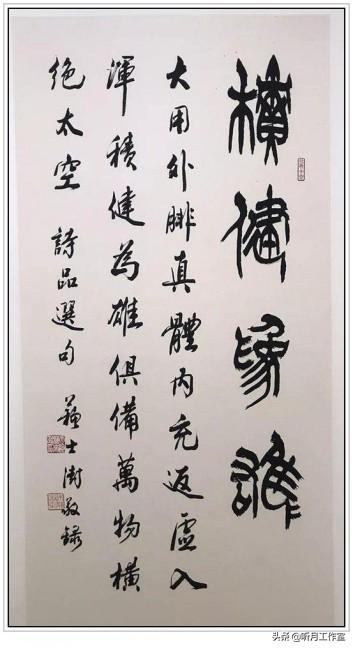 積健為雄
大用外腓真體內充返虛入
渾積健為雄俱備萬物橫
絕太空 詩品選句 蘇士澍敬錄
头条 @听月工作室